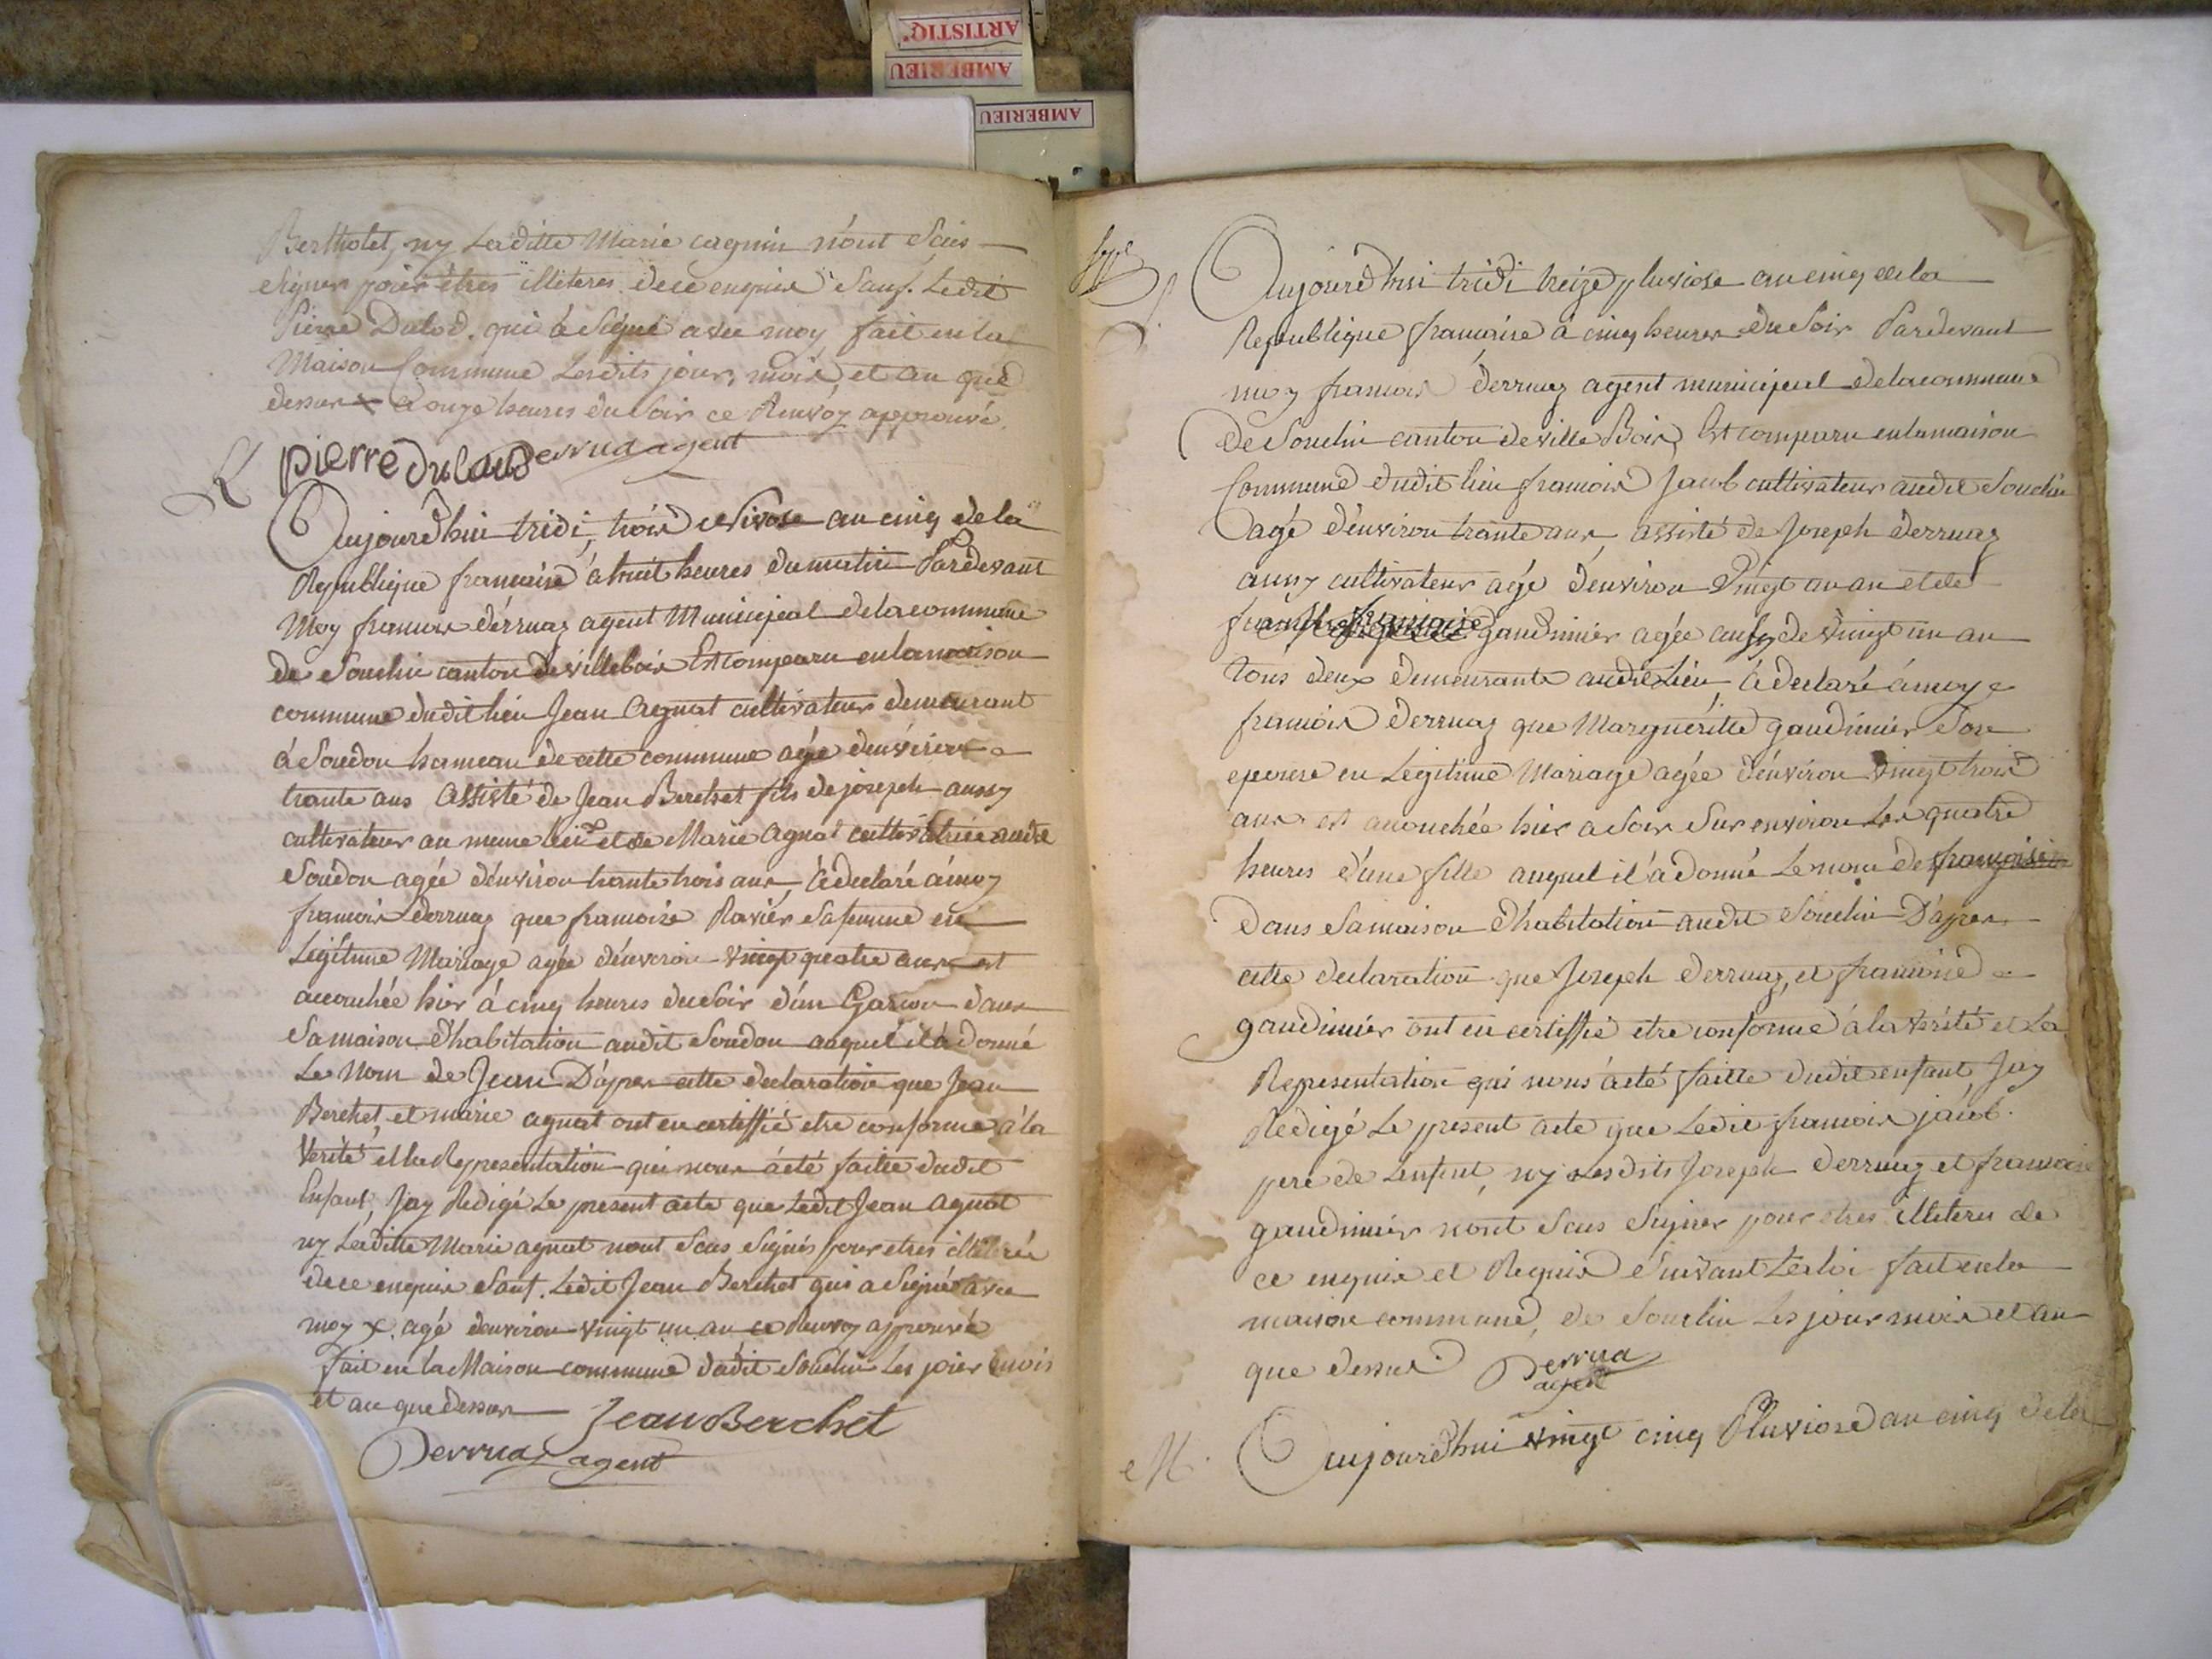 ARTISTIQ.
AMBERIEU
AMBERIEU
Bertholet, ny Laditte Marie cagnin n'ont Seus
Signer pour êtres illiteres dece enquis Sauf Ledit
Pierre Dulod. qui à Signé avec moy fait en la
Maison Commune Lesdits jour, mois, et an que
dessus x à onze heures du Soir ce Renvoy approuvé.
pierre dulaud Derruaz agent
Aujourdhui tridi, trois Nivose an cinq de la
Republique francaise à huit heures du matin Pardevant
Moy francois dérruaz agent Municipal delacommune
de Souclin canton de villebois Est comparu enlamaison
commune dudit lieu Jean Agnat cultivateur demeurant
à Soudon hameau de cette commune agé d'environ
trante ans Assisté de Jean Berchet fils de joseph aussy
cultivateur au meme lieu x et de Marie Agnat cultivatrice audit
Soudon agée d'environ trante trois ans, à declaré à moy
francois Derruaz que francoise Ravier Safemme en
Legitime Mariage agée d'environ vingt quatre ans est
accouchée hier à cinq heures du Soir d'un Garcon dans
Samaison d'habitation audit Soudon auquel il à donné
Le Nom de Jean D'apres cette declaration que Jean
Berchet, et marie agnat ont en certiffié etre conforme à la
Verité et la Representation qui nous à eté faitte dudit
Enfant, Jay Redigé Le present acte que Ledit Jean agnat
ny Laditte Marie agnat nont Seus Signés pour etres illiterée
dece enquis Sauf. Ledit Jean Berchet qui a Signé avec
moy x. agé d'environ vingt un an ce Renvoy approuvé
fait en la Maison commune dudit Souclin Les jour mois
et an que dessus Jean Berchet
Derruaz agent
Aujourdhui tridi treize pluviose an cinq de la
Republique francaise à cinq heures du Soir Pardevant
moy francois derruaz agent municipal delacommune
de Souclin canton de ville Bois, Est comparu enlamaison
Commune dudit lieu francois Jacob cultivateur audit Souclin
agé d'environ trante ans, assisté de Joseph derruaz
aussy cultivateur agé d'environ Vingt un an et de
francoise gaudinier agée aussy de vingt un an
tous deux demeurants audit Lieu, à declaré à moy
francois derruaz que Marguéritte gaudinier Son
epouse en Legitime Mariage agée d'environ vingt trois
ans est accouchée hier a Soir Sur environ Les quatre
heures d'une fille auquel il à donné Le nom de francoise
dans Samaison d'habitation audit Souclin D'apres
cette declaration que Joseph derruaz, et francoise
gaudinier ont en certiffié etre conforme à la verité et La
Representation qui nous à eté faitte dudit enfant, Jay
Redigé Le present acte que Ledit francois jacob.
pere de Lenfant, ny Lesdits Joseph derruaz et francoise
gaudinier nont Seus Signer pour etres illiteres de
ce enquis et Requis Suivant Laloi fait en la
maison commune, de Souclin Les jour mois et an
que dessus. Derrua
agent
N. Aujourdhui vingt cinq Pluviose an cinq de la